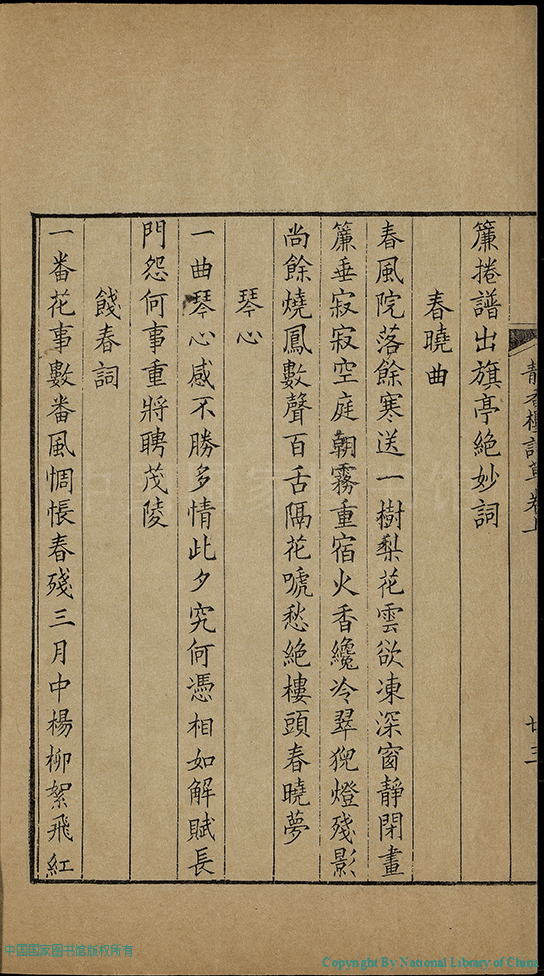 簾捲譜出旗亭絕妙詞
春曉曲
春風院落餘寒送一樹梨花雲欲凍深窗靜閉畫
簾垂寂寂空庭朝霧重宿火香纔冷翠猊燈殘影
尚餘燒鳳數聲百舌隔花啼愁絕樓頭春曉夢
琴心
一曲琴心感不勝多情此夕究何憑相如解賦長
門怨何事重將聘茂陵
餞春詞
一番花事數番風惆悵春殘三月中楊柳絮飛紅
中国国家图书馆版权所有
Copyright By National Library of China